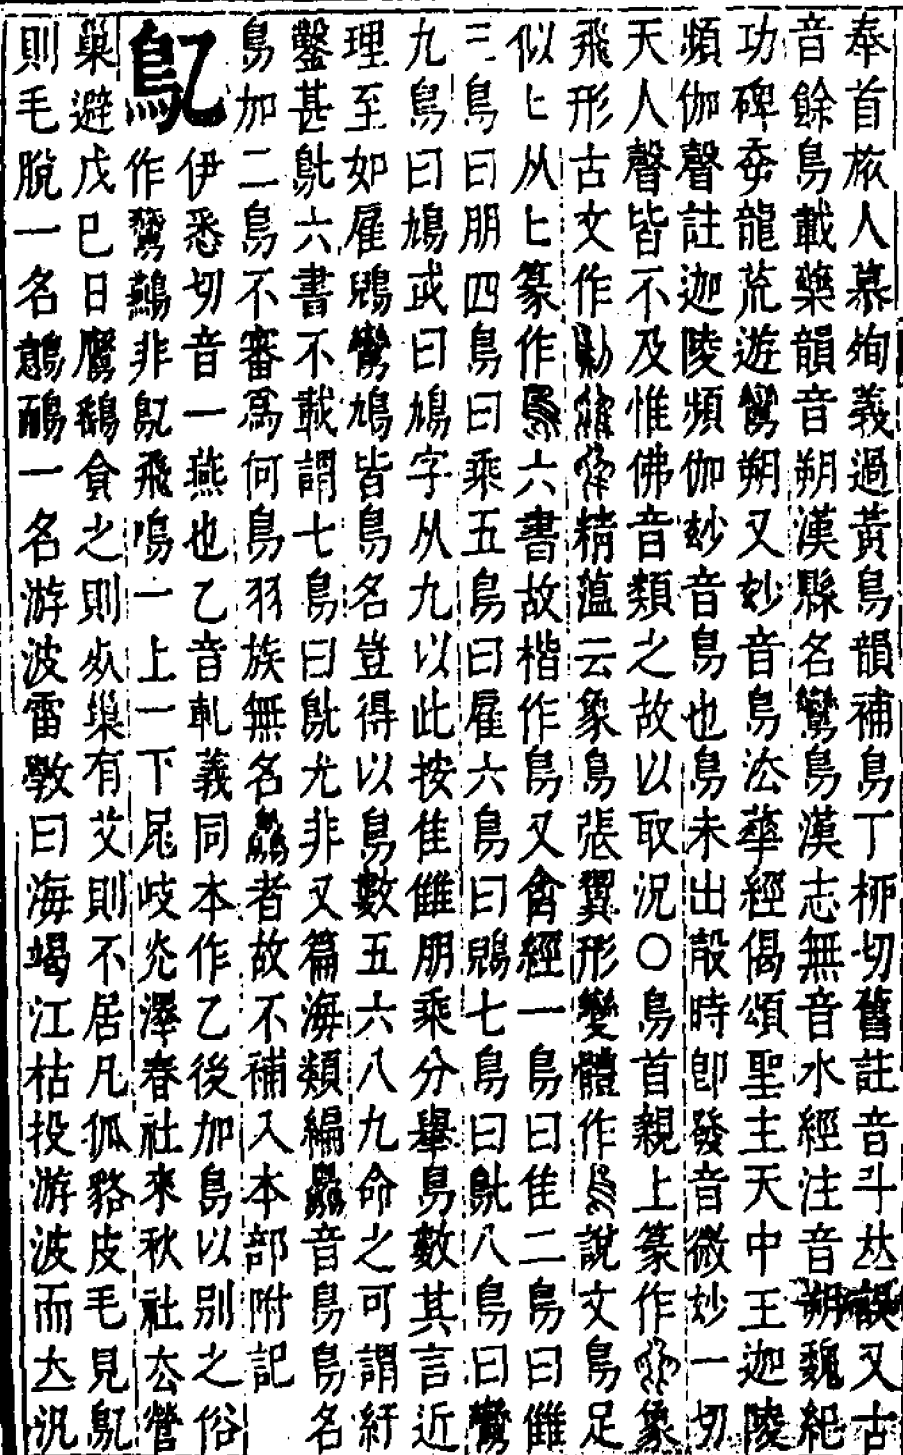 奉首旅人慕徇義過黃鳥韻補鳥丁柳切舊註音斗𠀤誤又古
音餘鳥載樂韻音朔漢縣名鸞鳥漢志無音水經注音朔魏紀
功碑委龍荒遊鸞朔又妙音鳥法華經偈頌聖主天中王迦陵
頻伽聲註迦陵頻伽妙音鳥也鳥未出㲉時即發音微妙一切
天人聲皆不及惟佛音類之故以取況○鳥首親上篆作象
飛形古文作精薀云象鳥張翼形變體作說文鳥足
似匕从匕篆作六書故楷作鳥又禽經一鳥曰隹二鳥曰雔
三鳥曰朋四鳥曰乘五鳥曰雇六鳥曰鶂七鳥曰鳦八鳥曰鸞
九鳥曰鳩或曰鳩字从九以此按隹雔朋乘分舉鳥數其言近
理至如雇鶂鸞鳩皆鳥名豈得以鳥數五六八九命之可謂紆
鑿甚鳦六書不載謂七鳥曰鳦尤非又篇海類編音鳥鳥名
鳥加二鳥不審爲何鳥羽族無名者故不補入本部附記
鳦
伊悉切音一燕也乙音軋義同本作乙後加鳥以别之俗
作鷖鷾非鳦飛鳴一上一下𡱒岐尣澤春社來秋社去營
巢避戊巳日鷹鷂食之則死巢有艾則不居凡狐貉皮毛見鳦
則毛脫一名鷾鴯一名游波雷斅曰海竭江枯投游波而立汎